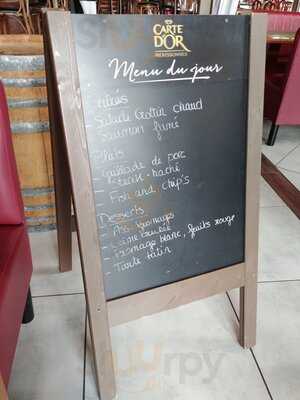 CARTE
D'OR
PROFESSIONNEL
Menu du jour
Entrées
- Salade Crottin chaud
- Saumon fumé
Plats
- Grillade de porc
- Steak-haché
- Fish and chip's
Desserts
- Ass fromages
- Crème brulée
- Fromage blanc, fruits rouge
- Tarte tatin